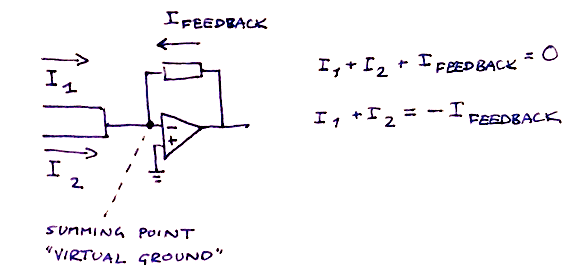 I FEEDBACK
I1
I2
− 
+
SUMMING POINT
"VIRTUAL GROUND"
I1 + I2 + I FEEDBACK = 0
I1 + I2 = − I FEEDBACK